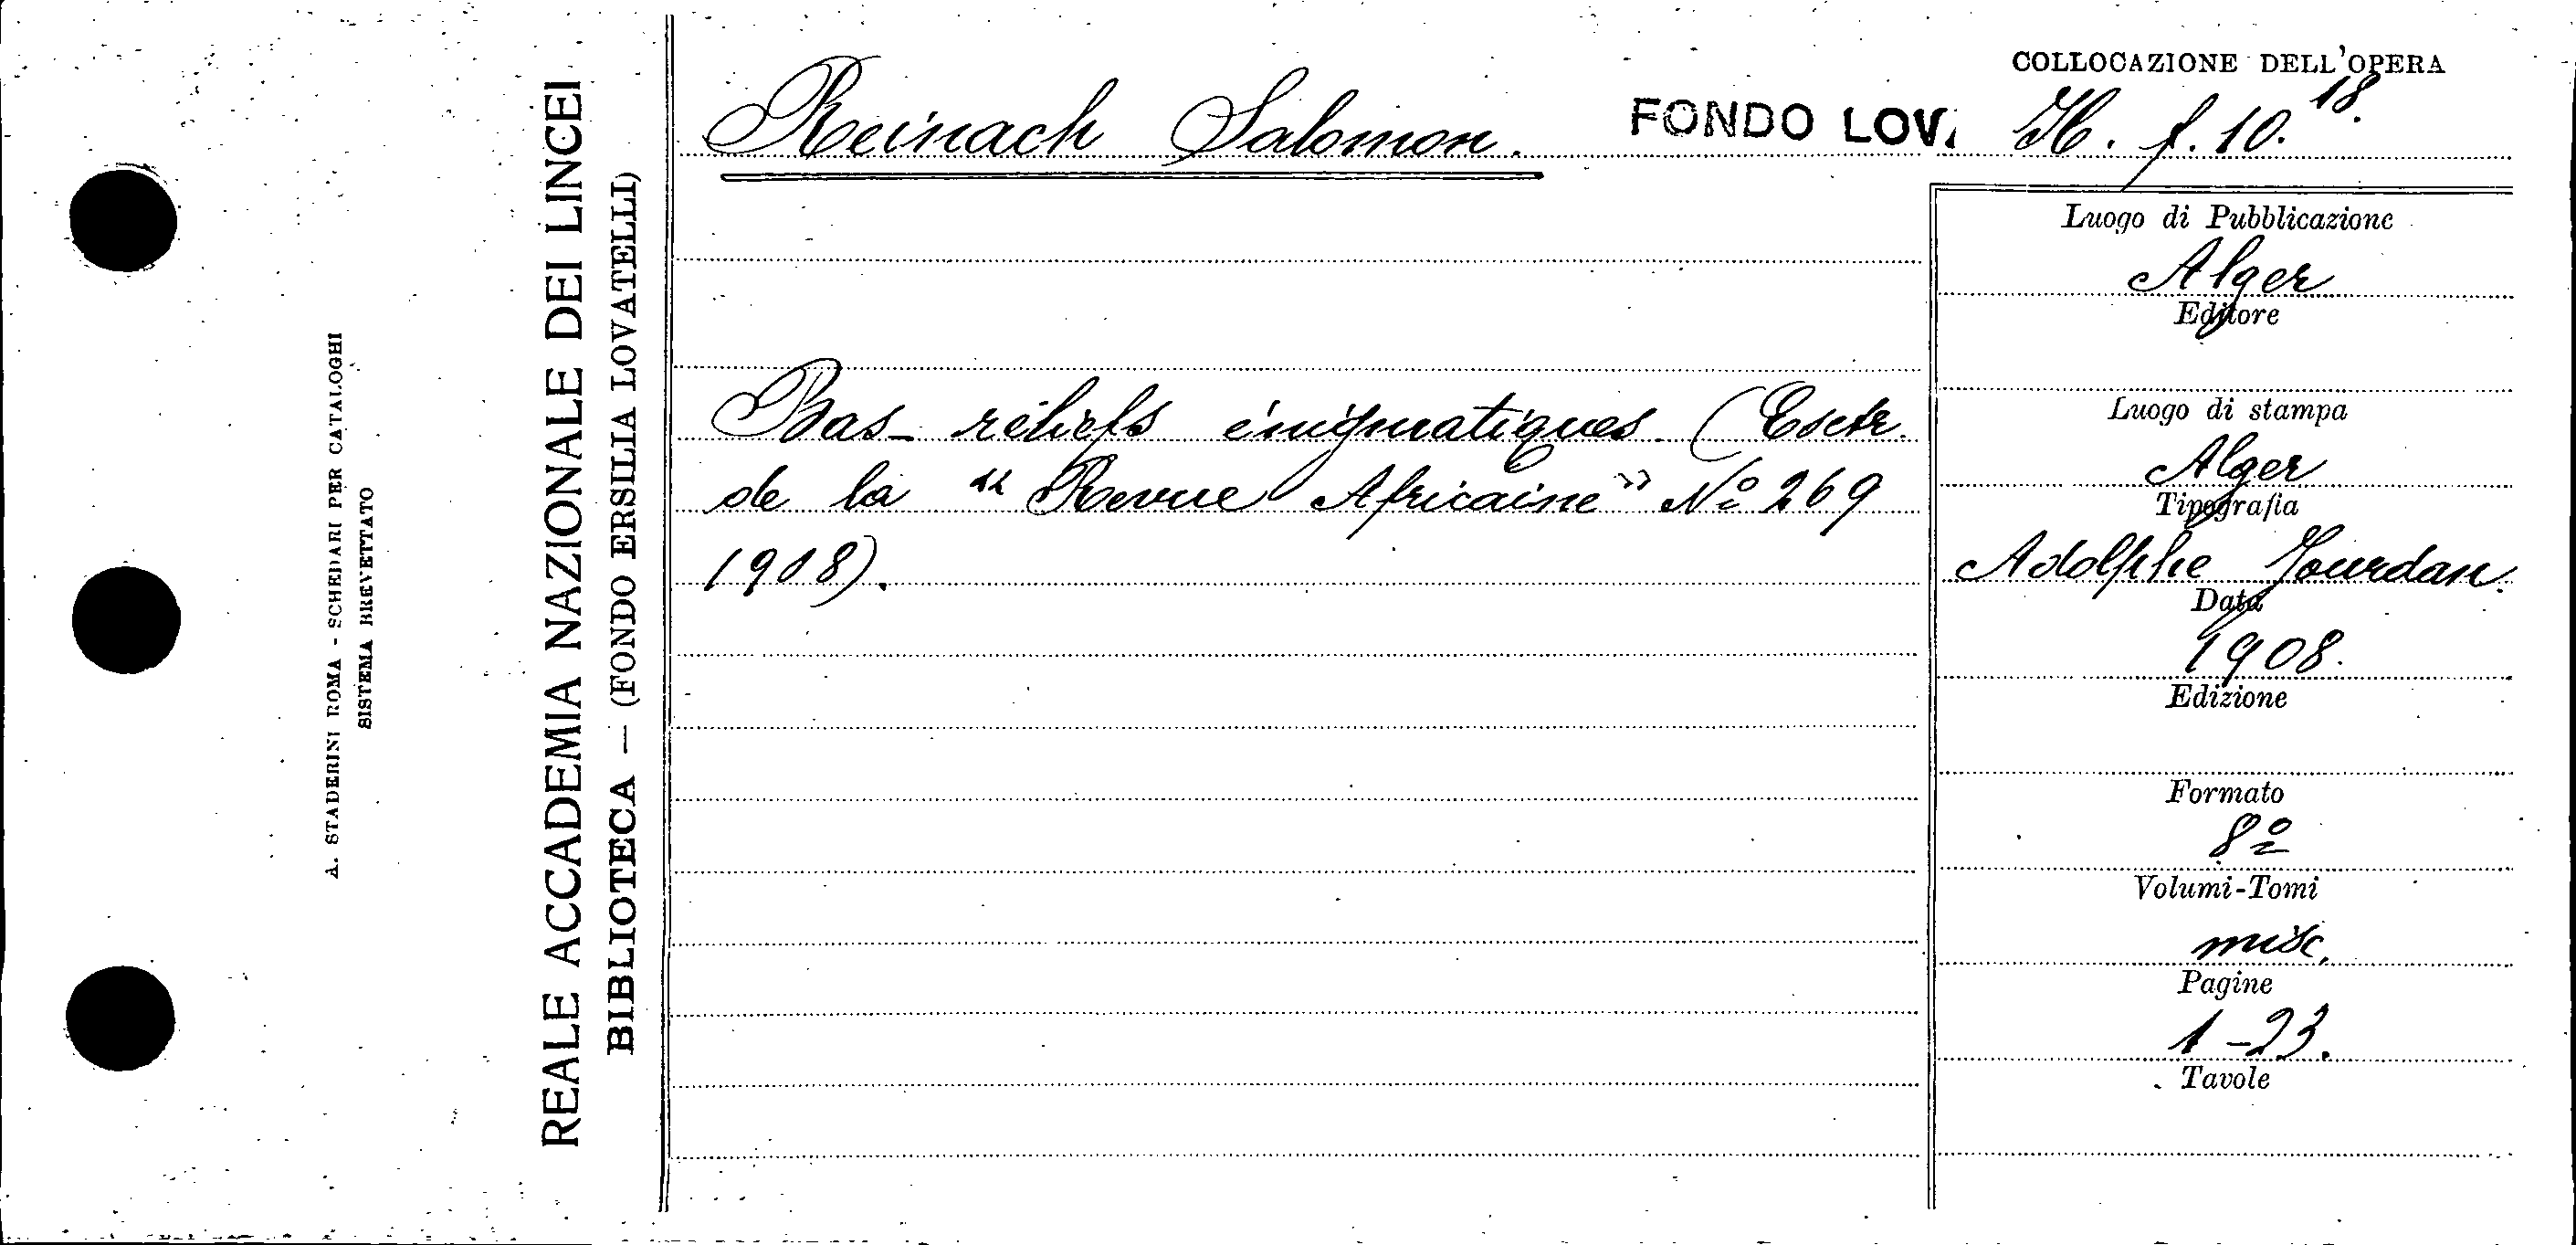 A. STADERINI ROMA - SCHEDARI PER CATALOGHI
SISTEMA BREVETTATO
REALE ACCADEMIA NAZIONALE DEI LINCEI
BIBLIOTECA — (FONDO ERSILIA LOVATELLI)
Reinach Salomon.
FONDO LOV.
COLLOCAZIONE DELL'OPERA
H. f. 10. 18.
Bas-réliefs énigmatiques (Extr.
de la "Revue Africaine" Nº 269
1908).
Luogo di Pubblicazione
Alger
Editore
Luogo di stampa
Alger
Tipografia
Adolphe Jourdan.
Data
1908.
Edizione
Formato
8º
Volumi-Tomi
misc.
Pagine
1-23.
Tavole